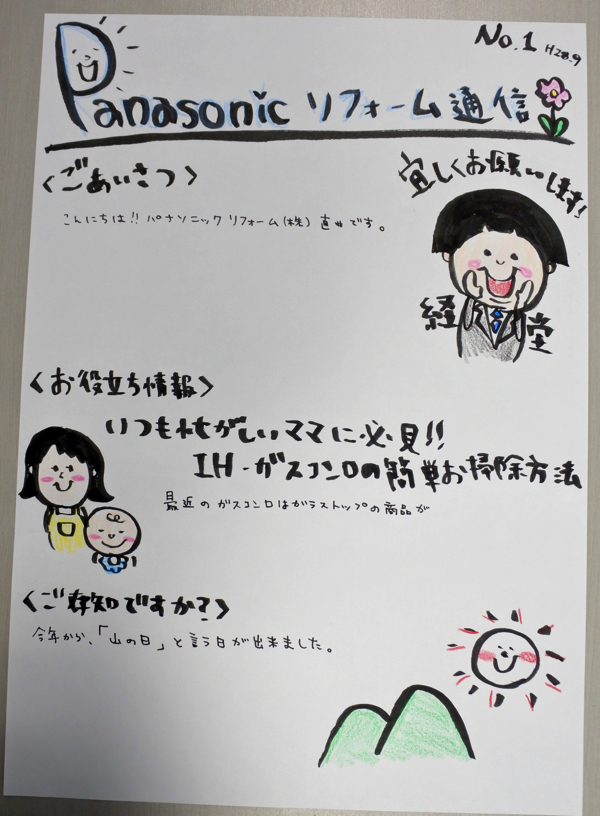 No.1 H28.9
Panasonic リフォーム通信
〈ごあいさつ〉
宜しくお願いします!
こんにちは!! パナソニック リフォーム(株) 直井です。
経堂
〈お役立ち情報〉
いつも忙がしいママに必見!!
IH・ガスコンロの簡単お掃除方法
最近のガスコンロはガラストップの商品が
〈ご存知ですか?〉
今年から、「山の日」と言う日が出来ました。